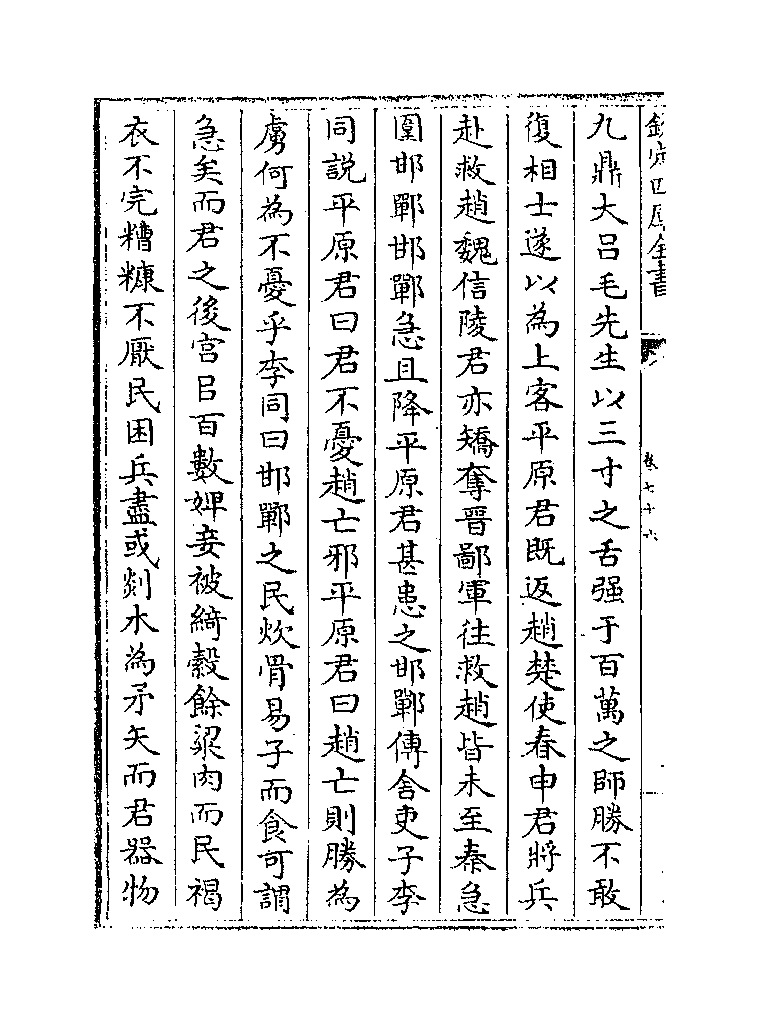 欽定四庫全書
卷七十六
九鼎大吕毛先生以三寸之舌强于百萬之師勝不敢
復相士遂以為上客平原君既返趙楚使春申君將兵
赴救趙魏信陵君亦矯奪晋鄙軍往救趙皆未至秦急
圍邯鄲邯鄲急且降平原君甚患之邯鄲傳舍吏子李
同説平原君曰君不憂趙亡邪平原君曰趙亡則勝為
虜何為不憂乎李同曰邯鄲之民炊骨易子而食可謂
急矣而君之後宫㠯百數婢妾被綺縠餘粱肉而民褐
衣不完糟糠不厭民困兵盡或剡木為矛矢而君器物